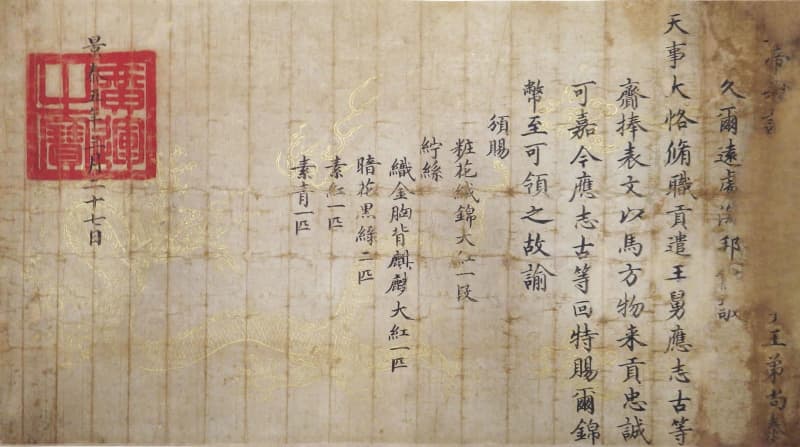 帝敕諭王弟尚泰
久爾遠處海邦敬
天事大恪脩職貢遣王舅應志古等
齎捧表文以馬方物來貢忠誠
可嘉今應志古等回特賜爾錦
幣至可領之故諭
頒賜
粧花絨錦大紅一段
紵絲
織金胸背麒麟大紅一匹
暗花黑綠二匹
素紅一匹
素青一匹
景泰五年三月二十七日
廣運之寶